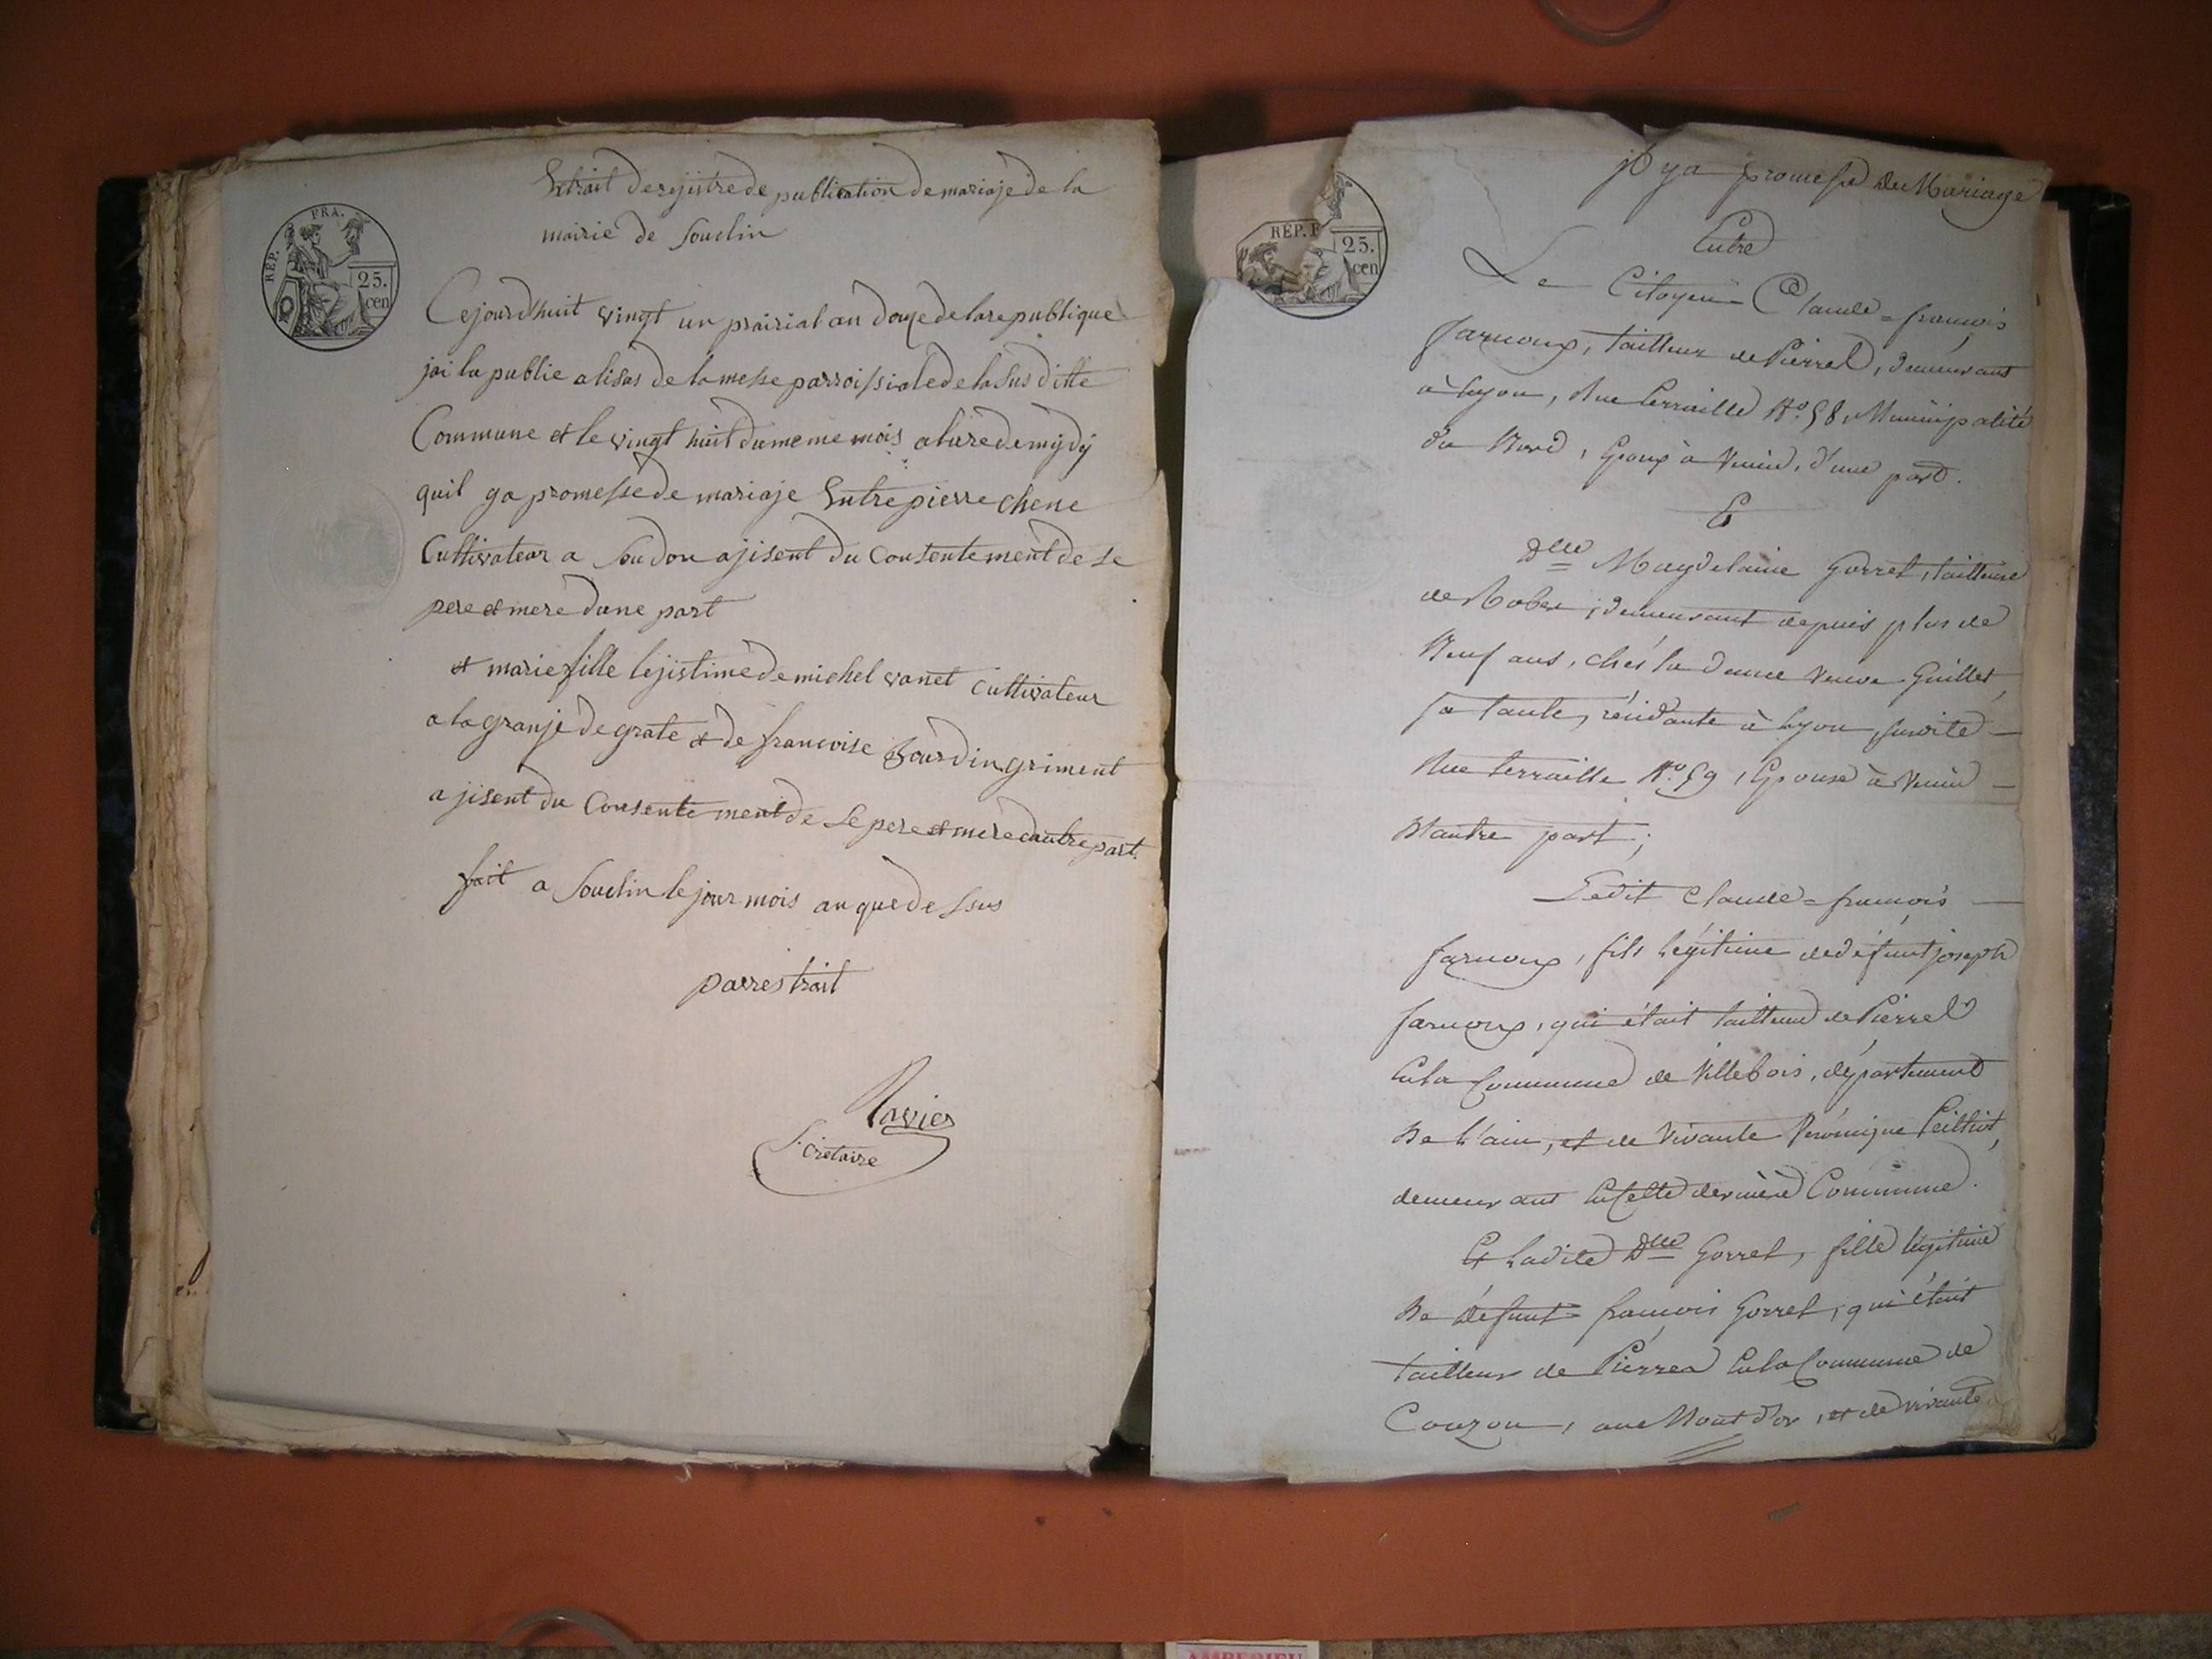 Extrait de rejistre de publication de mariaje de la
mairie de Souclin
REP. FRA.
25.
cen
Cejourdhuit vingt un prairial an douze de la republique
jai lu publie a lisas de la messe parroissiale de la susditte
Commune et le vingt huit du meme mois a lure de mydy
quil ya promesse de mariaje Entre pierre chene
Cultivateur a Soudon ajisent du Consentement de se
pere et mere dune part
et marie fille lejistime de michel vanet Cultivateur
a la granje de grate et de francoise Bourdin griment
ajisent du Consentement de se pere et mere dautre part
fait a Souclin le jour mois an que dessus
par restrait
Ravier
Secretaire
jl y a promesse de Mariage
Entre
REP. F
25.
cen
Le Citoyen Claude=françois
Jarnoux, tailleur de Pierres, demeurant
à Lyon, Rue terraille No. 58, Municipalité
du Nord, Epoux à Venir, d'une part.
Et
Dlle Magdelaine Gorret, tailleuse
de Robes, demeurant depuis plus de
Neuf ans, chés la dame Veuve Guillet,
sa tante, résidante à Lyon, susdite
Rue terraille No. 59, Epouse à Venir
D'autre part;
Ledit Claude=françois
Jarnoux, fils légitime de défunt joseph
Jarnoux, qui était tailleur de Pierres
En la Commune de Villebois, département
De L'ain, et de vivante Véronique Peilliot,
demeurant En Cette dernière Commune.
Et Ladite Dlle Gorret, fille légitime
De Défunt françois Gorret, qui était
tailleur de Pierres En la Commune de
Couzon, au Mont d'or, et de vivante